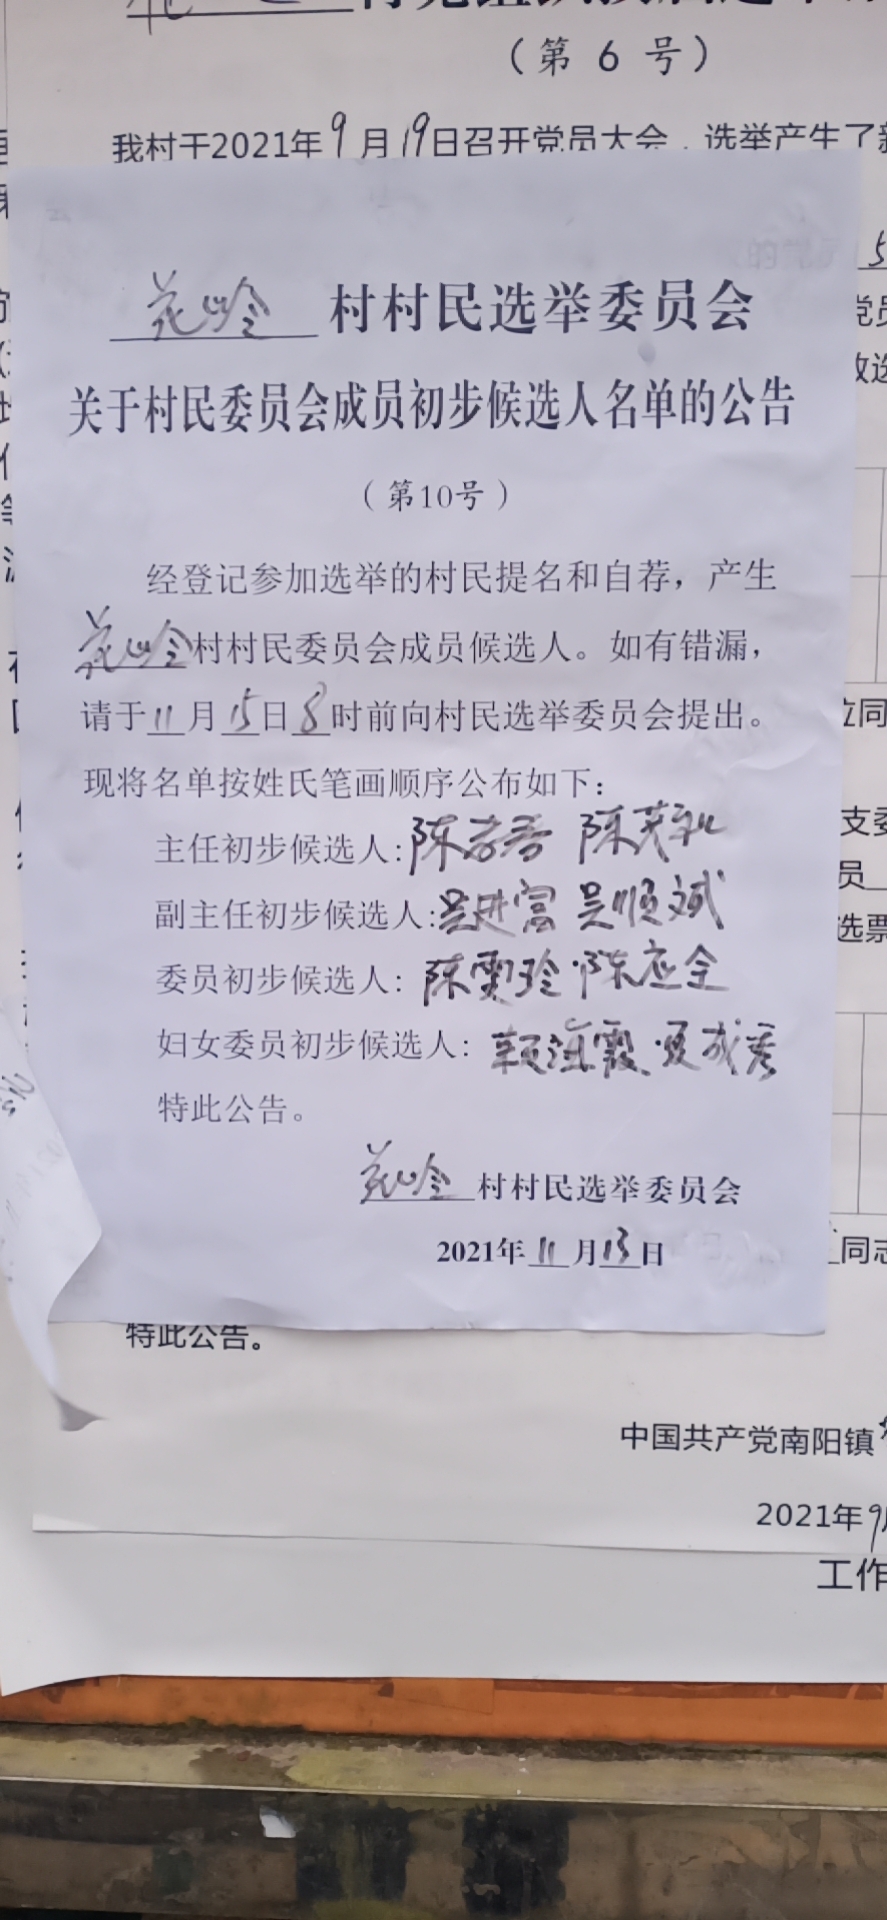 （第 6 号）
我村于2021年9月19日召开党员大会，选举产生了新
花岭村村民选举委员会
关于村民委员会成员初步候选人名单的公告
（第10号）
经登记参加选举的村民提名和自荐，产生
花岭村村民委员会成员候选人。如有错漏，
请于11月15日8时前向村民选举委员会提出。
现将名单按姓氏笔画顺序公布如下：
主任初步候选人:陈 陈
副主任初步候选人:吴进富 吴顺斌
委员初步候选人: 陈雪玲·陈应全
妇女委员初步候选人: 赖海霞·夏成秀
特此公告。
花岭村村民选举委员会
2021年11月13日
位同
支委
员
选票
同志
特此公告。
中国共产党南阳镇
2021年9月
工作